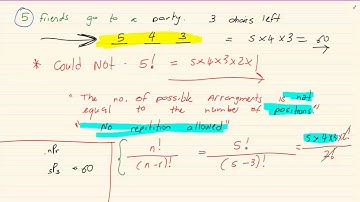 5 friends go to a party. 3 chairs left
5 4 3 = 5x4x3 = 60
* Could NOT - 5! = 5x4x3x2x1
"The no. of possible Arrangments is not
equal to the number of positions"
"No repitition allowed"
n! / (n-r)! = 5! / (5-3)! = 5x4x3x2! / 2!
nPr
5P3 = 60